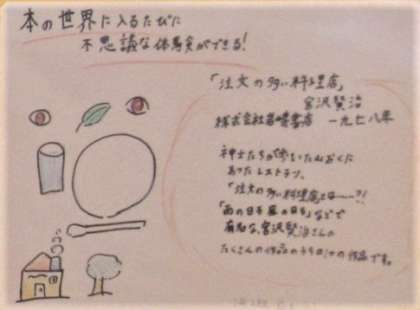 本の世界に入るたびに
不思議な体験ができる!
「注文の多い料理店」
宮沢賢治
株式会社岩崎書店 一九七八年
紳士たちが迷いた山おくに
あったレストラン。
「注文の多い料理店とは――?!
「雨の日も風の日も」などで
有名な、宮沢賢治さんの
たくさんの作品のうちの1つの作品です。